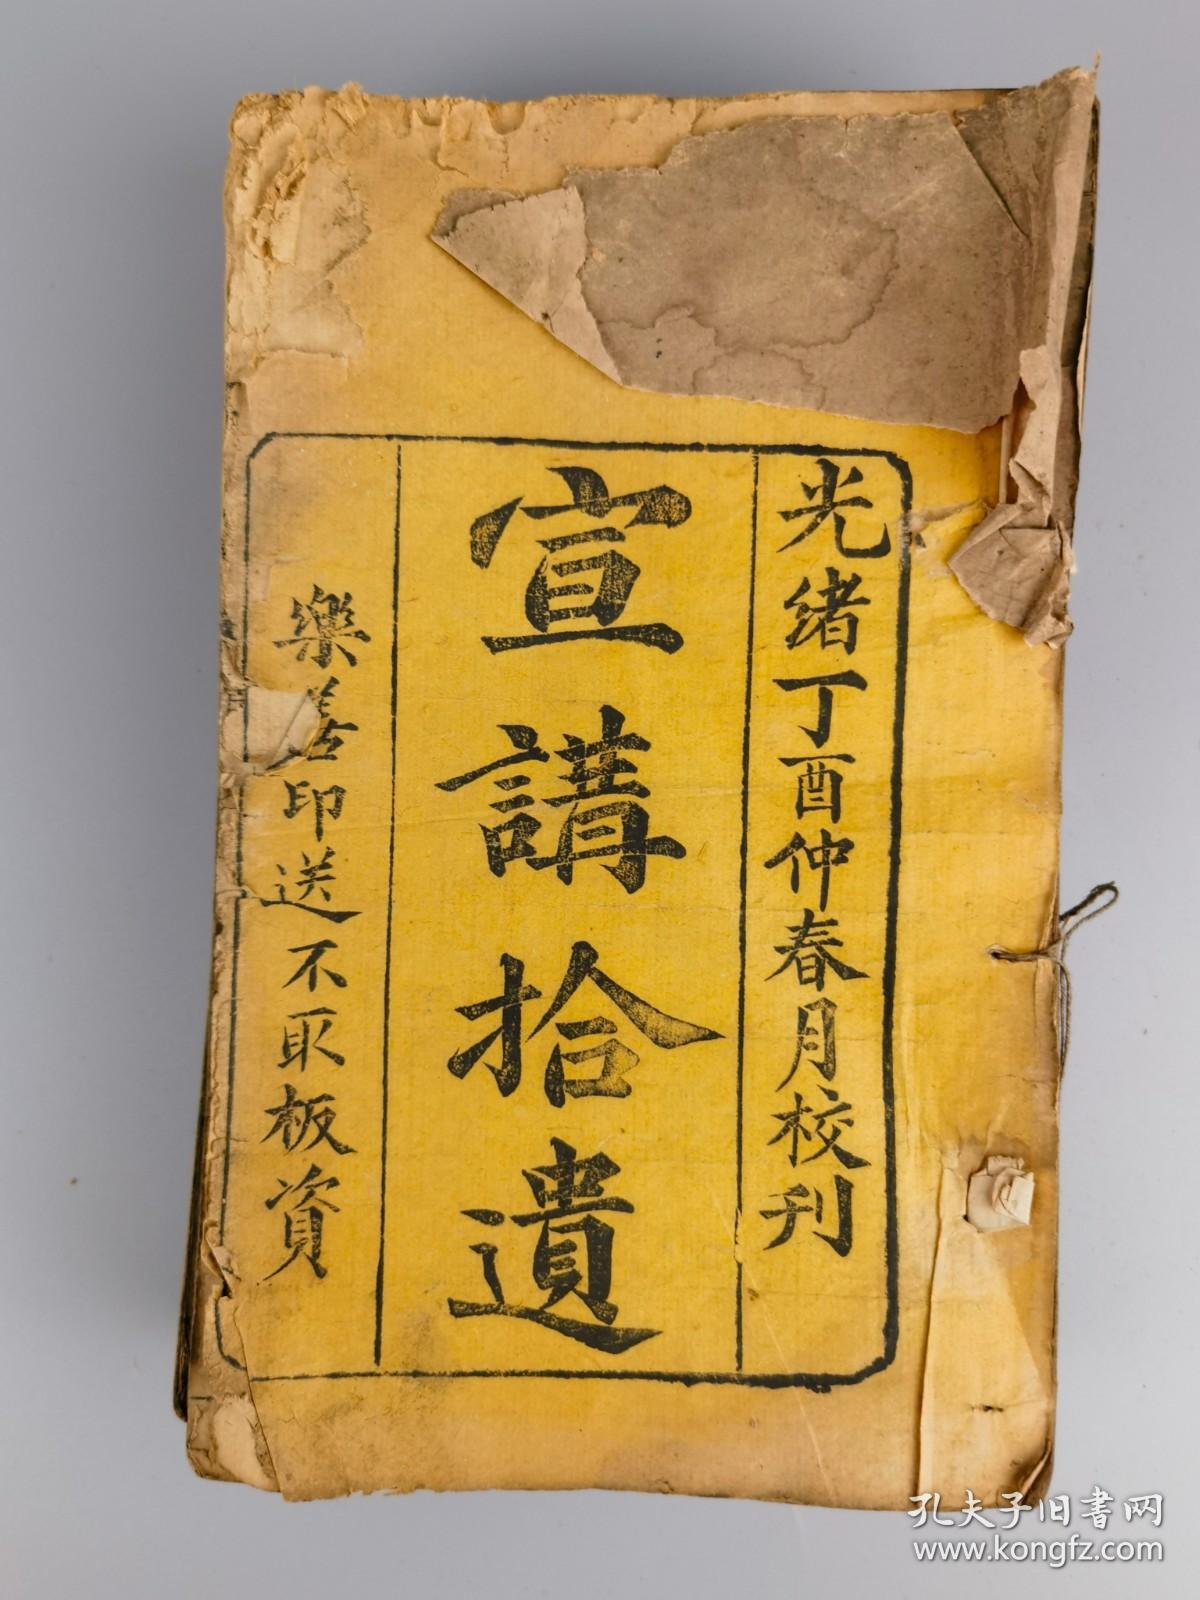 光緒丁酉仲春月校刊
宣講拾遺
樂善印送不取板資
孔夫子旧書网
www.kongfz.com